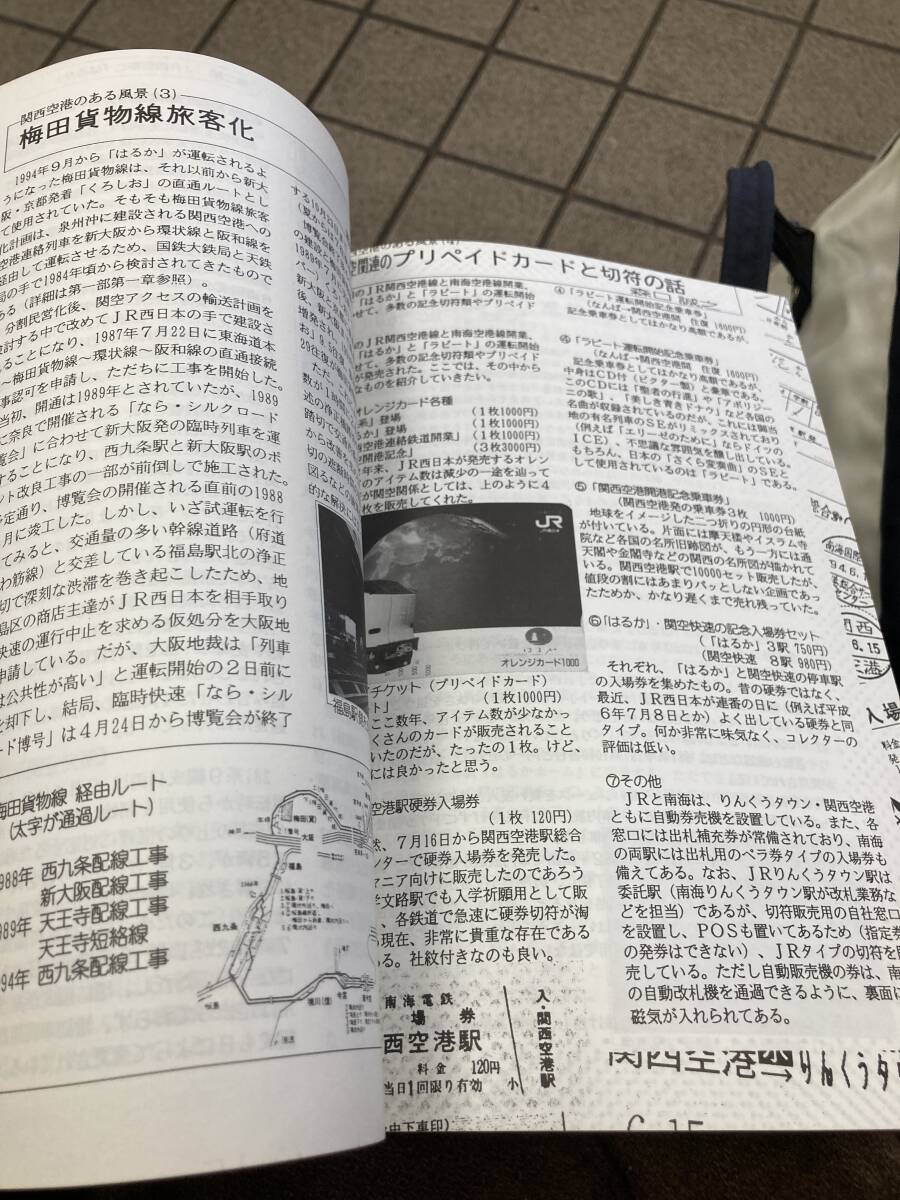 関西空港のある風景(3)
梅田貨物線旅客化
1994年9月から「はるか」が運転されるよ
うになった梅田貨物線は、それ以前から新大
阪・京都発着「くろしお」の直通ルートとし
て使用されていた。そもそも梅田貨物線旅客
化計画は、泉州沖に建設される関西空港への
空港連絡列車を新大阪から環状線と阪和線を
経由して運転させるため、国鉄大鉄局と天鉄
局の手で1984年頃から検討されてきたもので
ある(詳細は第一部第一章参照)。
分割民営化後、関空アクセスの輸送計画を
検討する中で改めてJR西日本の手で建設さ
れることになり、1987年7月22日に東海道本
~梅田貨物線~環状線~阪和線の直通接続
事認可を申請し、ただちに工事を開始した。
当初、開通は1989年とされていたが、1989
に奈良で開催される「なら・シルクロード
覧会」に合わせて新大阪発の臨時列車を運
することになり、西九条駅と新大阪駅のポ
ント改良工事の一部が前倒しで施工された。
予定通り、博覧会の開催される直前の1988
月に竣工した。しかし、いざ試運転を行
てみると、交通量の多い幹線道路(府道
わ筋線)と交差している福島駅北の浄正
切で深刻な渋滞を巻き起こしたため、地
島区の商店主達がJR西日本を相手取り
快速の運行中止を求める仮処分を大阪地
申請している。だが、大阪地裁は「列車
は公共性が高い」と運転開始の2日前に
を却下し、結局、臨時快速「なら・シル
ード博号」は4月24日から博覧会が終了
梅田貨物線 経由ルート
(太字が通過ルート)
1988年 西九条配線工事
新大阪配線工事
1989年 天王寺配線工事
天王寺短絡線
1994年 西九条配線工事
梅田(貨)
大阪
福島
西九条
関連のプリペイドカードと切符の話
のJR関西空港線と南海空港線開業、
「はるか」と「ラピート」の運転開始
せて、多数の記念切符類やプリペイド
が発売された。ここでは、その中から
なものを紹介していきたい。
オレンジカード各種
系」登場 (1枚1000円)
るか」登場 (1枚1000円)
空港連絡鉄道開業」 (1枚1000円)
開港記念」 (3枚3000円)
年来、JR西日本が発売するオレン
のアイテム数は減少の一途を辿って
が関空関係としては、上のように4
枚を販売してくれた。
JR
オレンジカード1000
チケット(プリペイドカード)
ト」 (1枚1000円)
ここ数年、アイテム数が少なかっ
くさんのカードが発売されること
いたのだが、たったの1枚。けど、
には良かったと思う。
空港駅硬券入場券
(1枚120円)
、7月16日から関西空港駅総合
ンターで硬券入場券を発売した。
マニア向けに販売したのであろう
学文路駅でも入学祈願用として販
、各鉄道で急速に硬券切符が淘
現在、非常に貴重な存在である
る。社紋付きなのも良い。
④「ラピート運転開始記念乗車券」
(なんば→関西空港間 往復 1600円)
記念乗車券としてはかなり高額であるが、
中身はCD付(ビクター盤)と豪華である。
このCDには「聖者の行進」や「アボリジ
ニの歌」、「美しき青きドナウ」など各国の
名曲が収録されているのだが、これには御当
地の有名列車のSEがリミックスされており
(例えば「エリーゼのために」ならドイツの
ICE)、不思議な雰囲気を醸し出している。
もちろん、日本の「さくら変奏曲」のSEと
して使用されているのは「ラピート」である。
⑤「関西空港開港記念乗車券」
(関西空港発の乗車券3枚 1000円)
地球をイメージした二つ折りの円形の台紙
が付いている。片面には摩天楼やイスラム寺
院など各国の名所旧跡図が、もう一方には通
天閣や金閣寺などの関西の名所図が描かれて
いる。関西空港駅で10000セット販売したが、
値段の割にはあまりパッとしない企画であっ
たためか、かなり遅くまで売れ残っていた。
⑥「はるか」・関空快速の記念入場券セット
(「はるか」3駅 750円)
(関空快速 8駅 980円)
それぞれ、「はるか」と関空快速の停車駅
の入場券を集めたもの。昔の硬券ではなく、
最近、JR西日本が連番の日に(例えば平成
6年7月8日とか)よく出している硬券と同
タイプ。何か非常に味気なく、コレクターの
評価は低い。
⑦その他
JRと南海は、りんくうタウン・関西空港
ともに自動券売機を設置している。また、各
窓口には出札補充券が常備されており、南海
の両駅には出札用のペラ券タイプの入場券も
備えてある。なお、JRりんくうタウン駅は
委託駅(南海りんくうタウン駅が改札業務な
どを担当)であるが、切符販売用の自社窓口
を設置し、POSも置いてあるため(指定券
の発券はできない)、JRタイプの切符を販
売している。ただし自動販売機の券は、南
の自動改札機を通過できるように、裏面に
磁気が入れられてある。
南海電鉄
場券
西空港駅
料金 120円
当日1回限り有効
小
入・関西空港駅
関西空港
りんくうタ
6.15